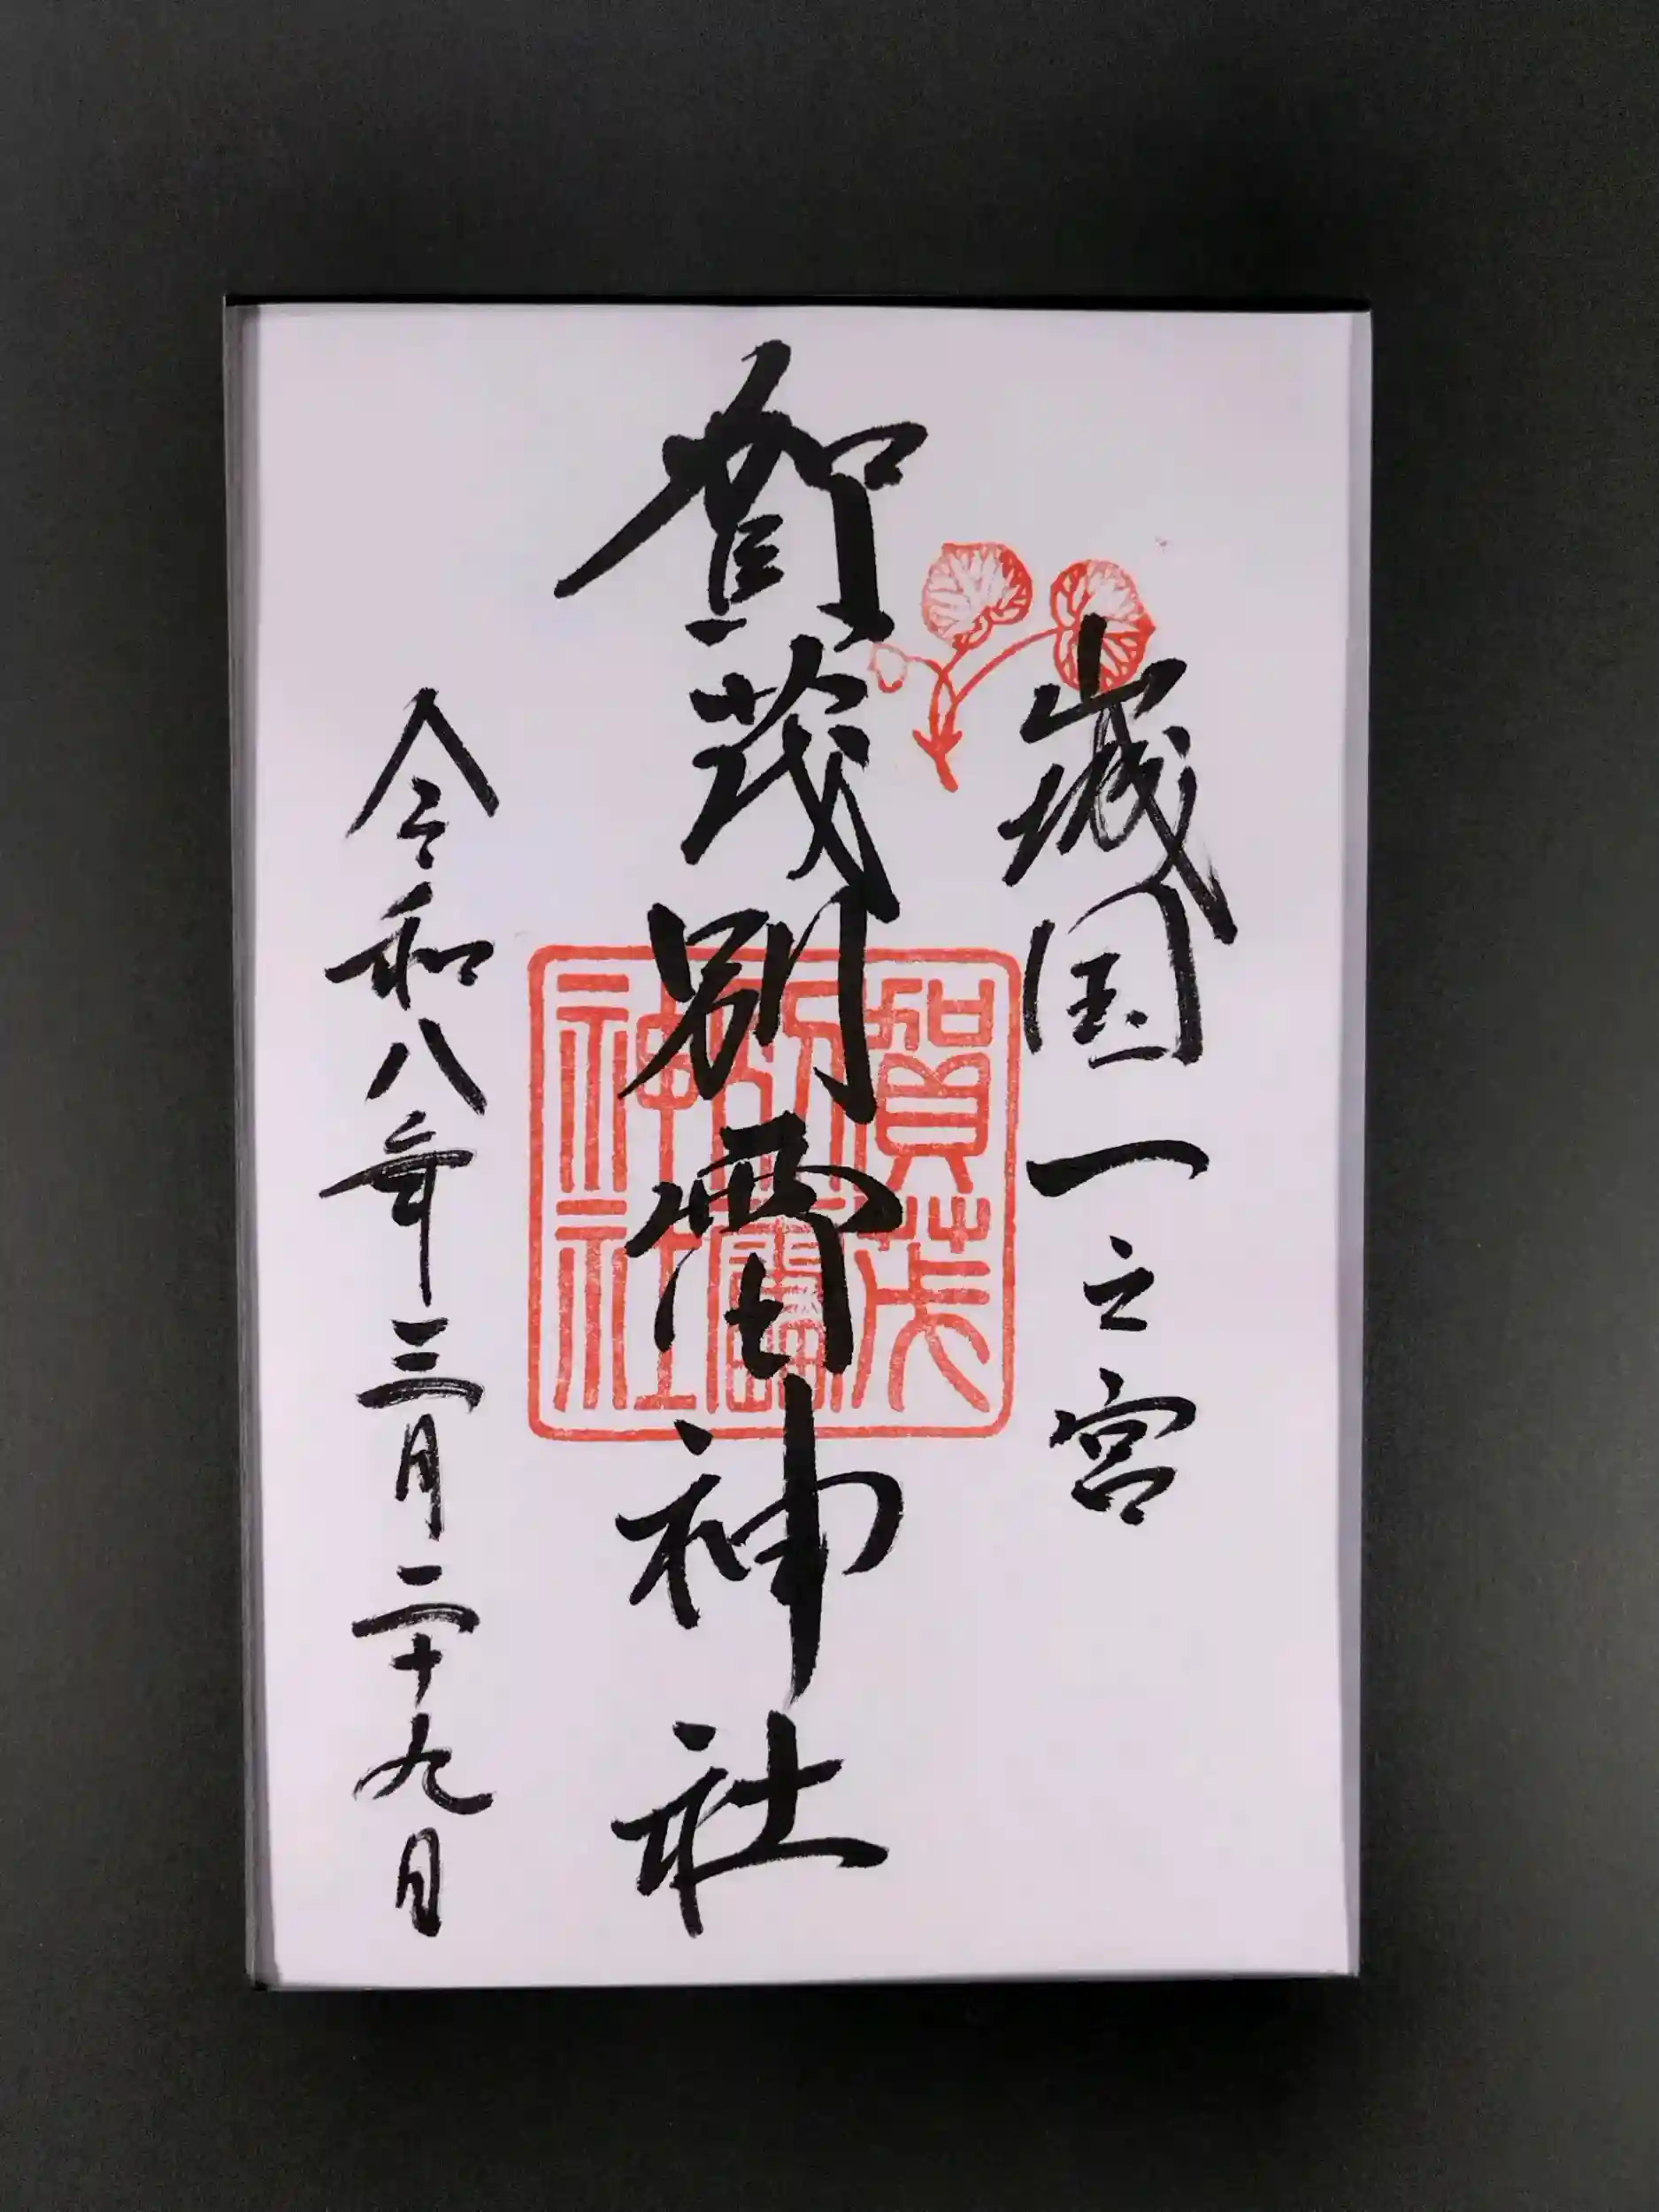 山城国一之宮
賀茂別雷神社
令和八年三月二十九日
賀茂
別雷
神社